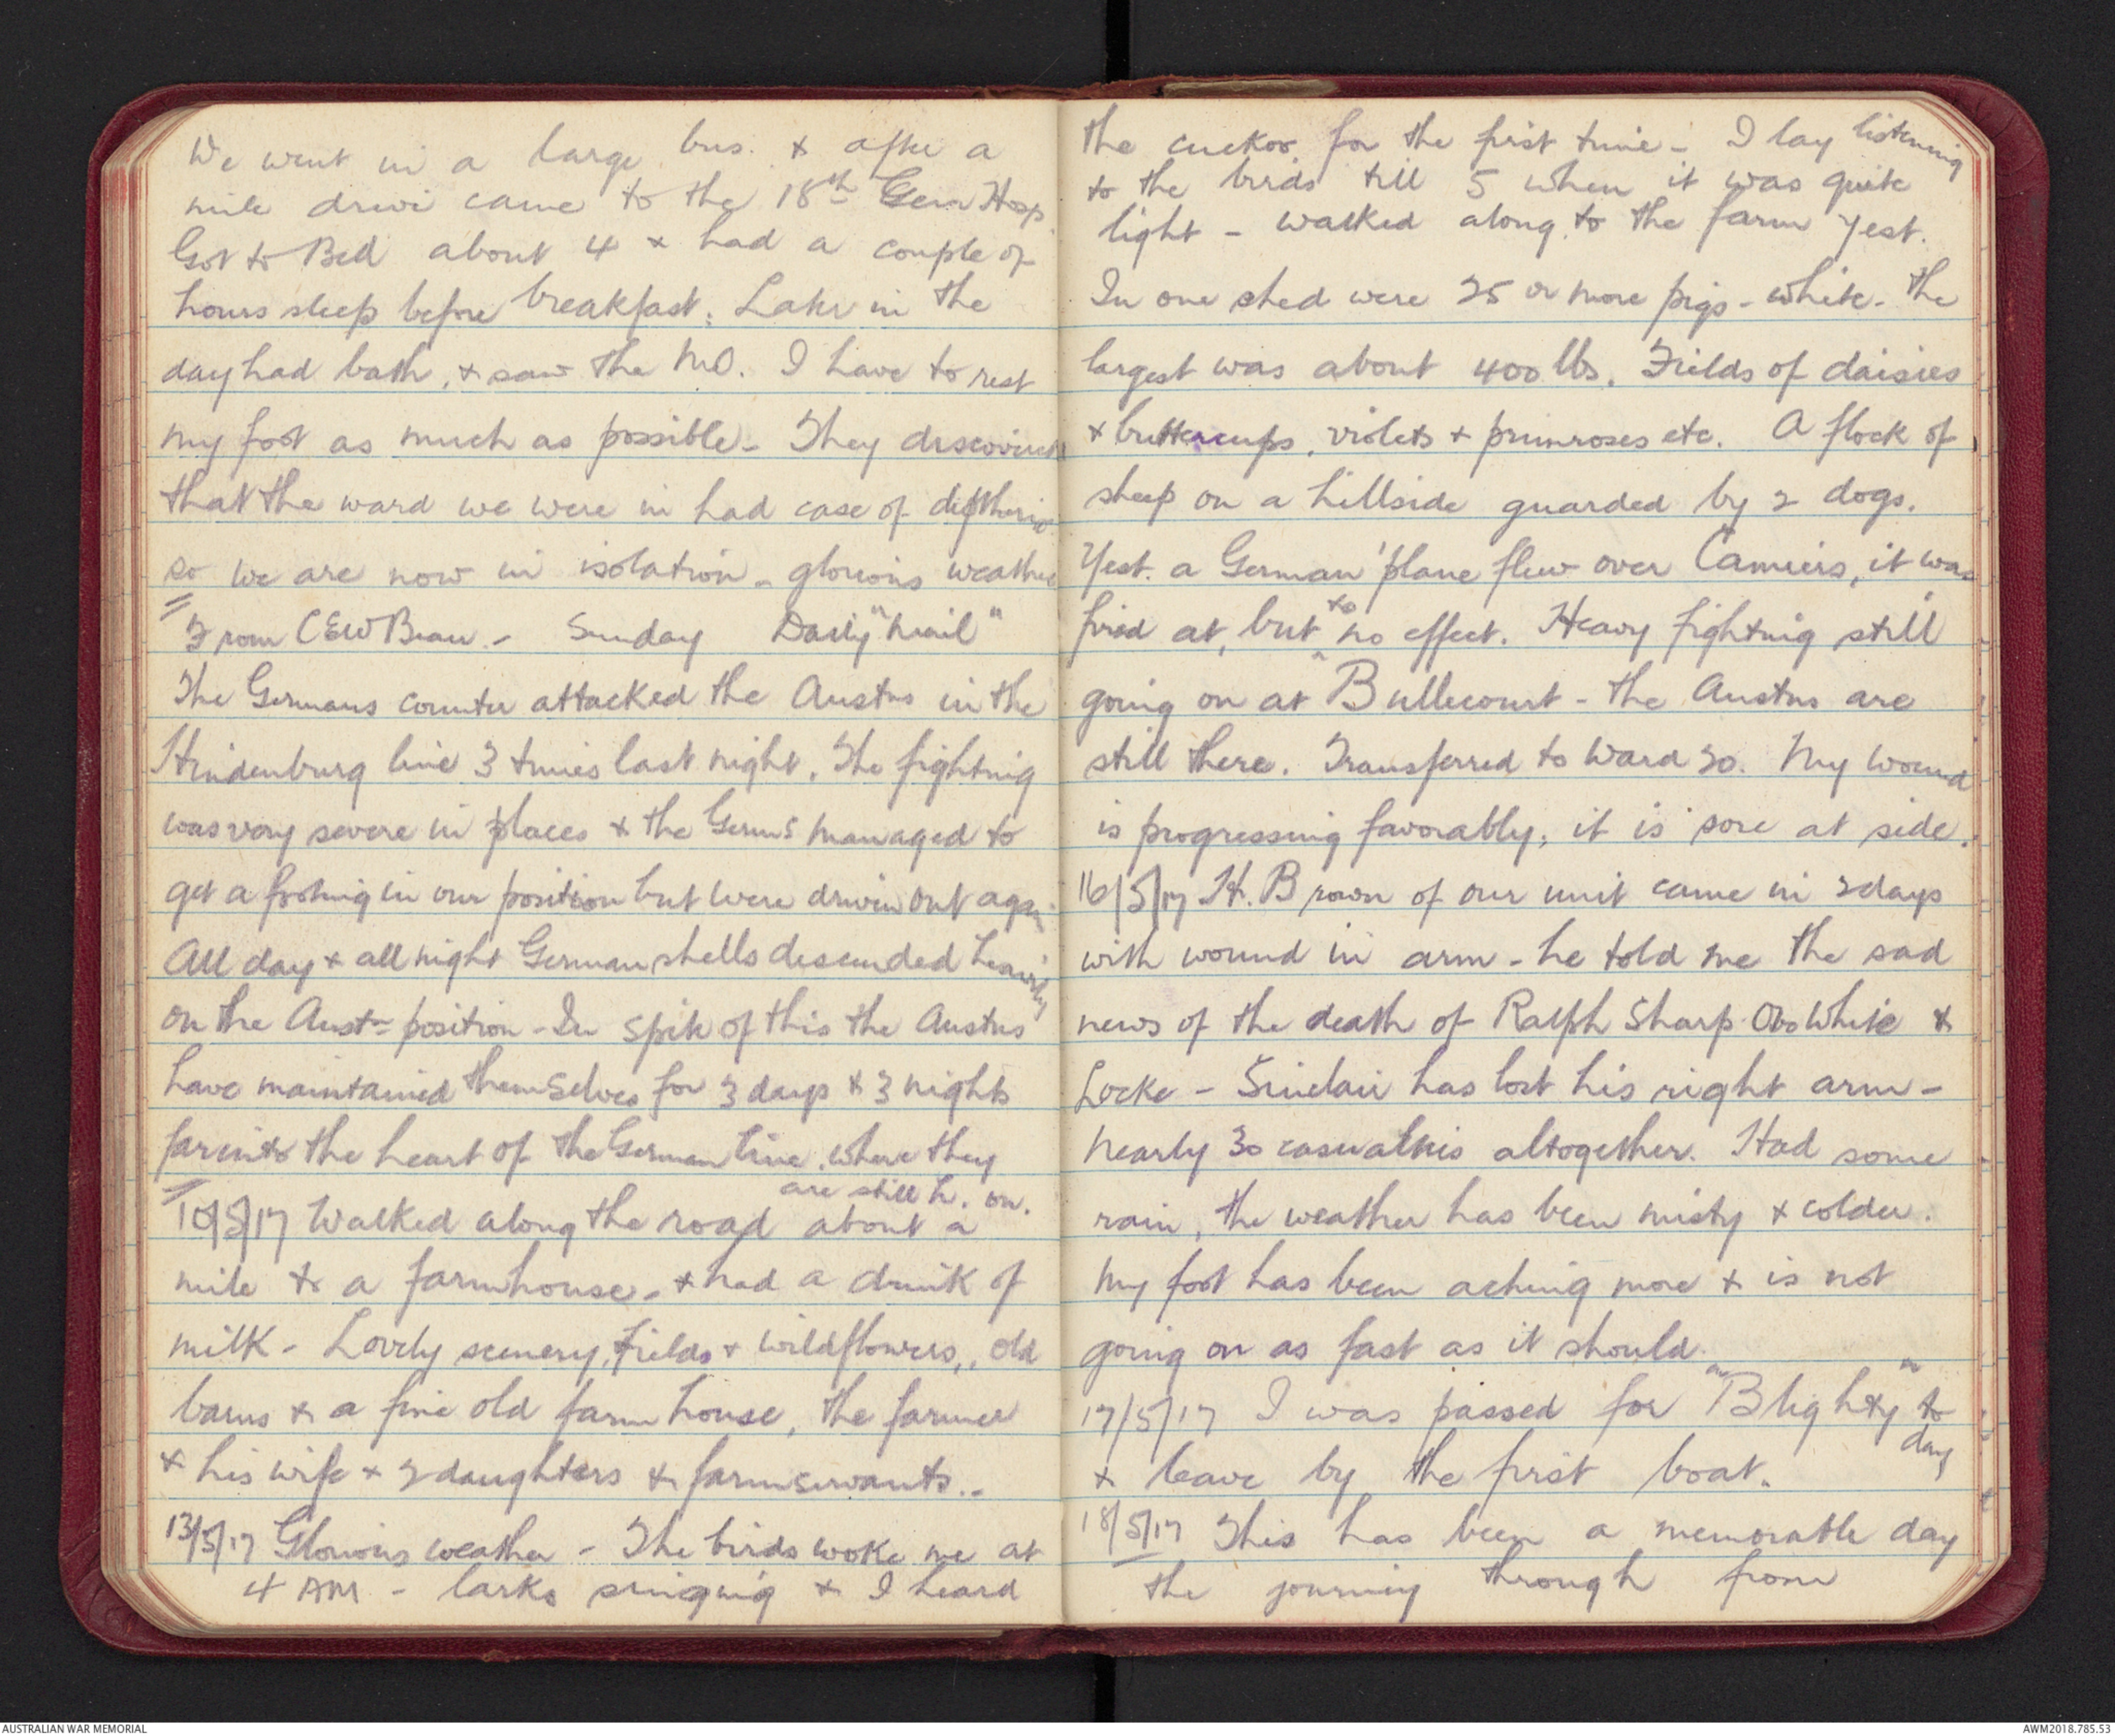 We went in a large bus. & after a
mile drive came to the 18th Gen Hosp
Got to Bed about 4 & had a couple of
hours sleep before breakfast. Later in the
day had bath, & saw the MO. I have to rest
my foot as much as possible - They discovered
that the ward we were in had case of diptheria
so we are now in isolation - glorious weather
= From CEW Bean. - Sunday Daily "Mail"
The Germans counter attacked the Austns in the
Hindenburg line 3 times last night. The fighting
was very severe in places & the Germs managed to
get a footing in our position but were driven out again
All day & all night German shells descended heavily
on the Austn position - In spite of this the Austns
have maintained themselves for 3 days & 3 nights
far into the heart of the German line where they
are still h. on.
= 10/5/17 Walked along the road about a
mile to a farmhouse - & had a drink of
milk - Lovely scenery, fields & wildflowers, old
barns & a fine old farm house, the farmer
& his wife & 2 daughters & farmservants..
13/5/17 Glorious weather - The birds woke me at
4 AM - larks singing & I heard
the cuckoo for the first time - I lay listening
to the birds till 5 when it was quite
light - walked along to the farm yest.
In one shed were 25 or more pigs - white - the
largest was about 400 lbs. Fields of daisies
& buttercups, violets & primroses etc. A flock of
sheep on a hillside guarded by 2 dogs.
Yest. a German 'plane flew over Camiers, it was
fired at, but to no effect. Heavy fighting still
going on at Bullecourt - the Austns are
still there. Transferred to Ward 20. My wound
is progressing favorably, it is sore at side.
16/5/17 H. Brown of our unit came in 2 days
with wound in arm - he told me the sad
news of the death of Ralph Sharp White &
Locke - Sinclair has lost his right arm -
nearly 30 casualties altogether. Had some
rain, the weather has been misty & colder.
My foot has been aching more & is not
going on as fast as it should.
17/5/17 I was passed for "Blighty" to
day
& leave by the first boat.
18/5/17 This has been a memorable day
the journey through from
AUSTRALIAN WAR MEMORIAL
AWM2018.785.53